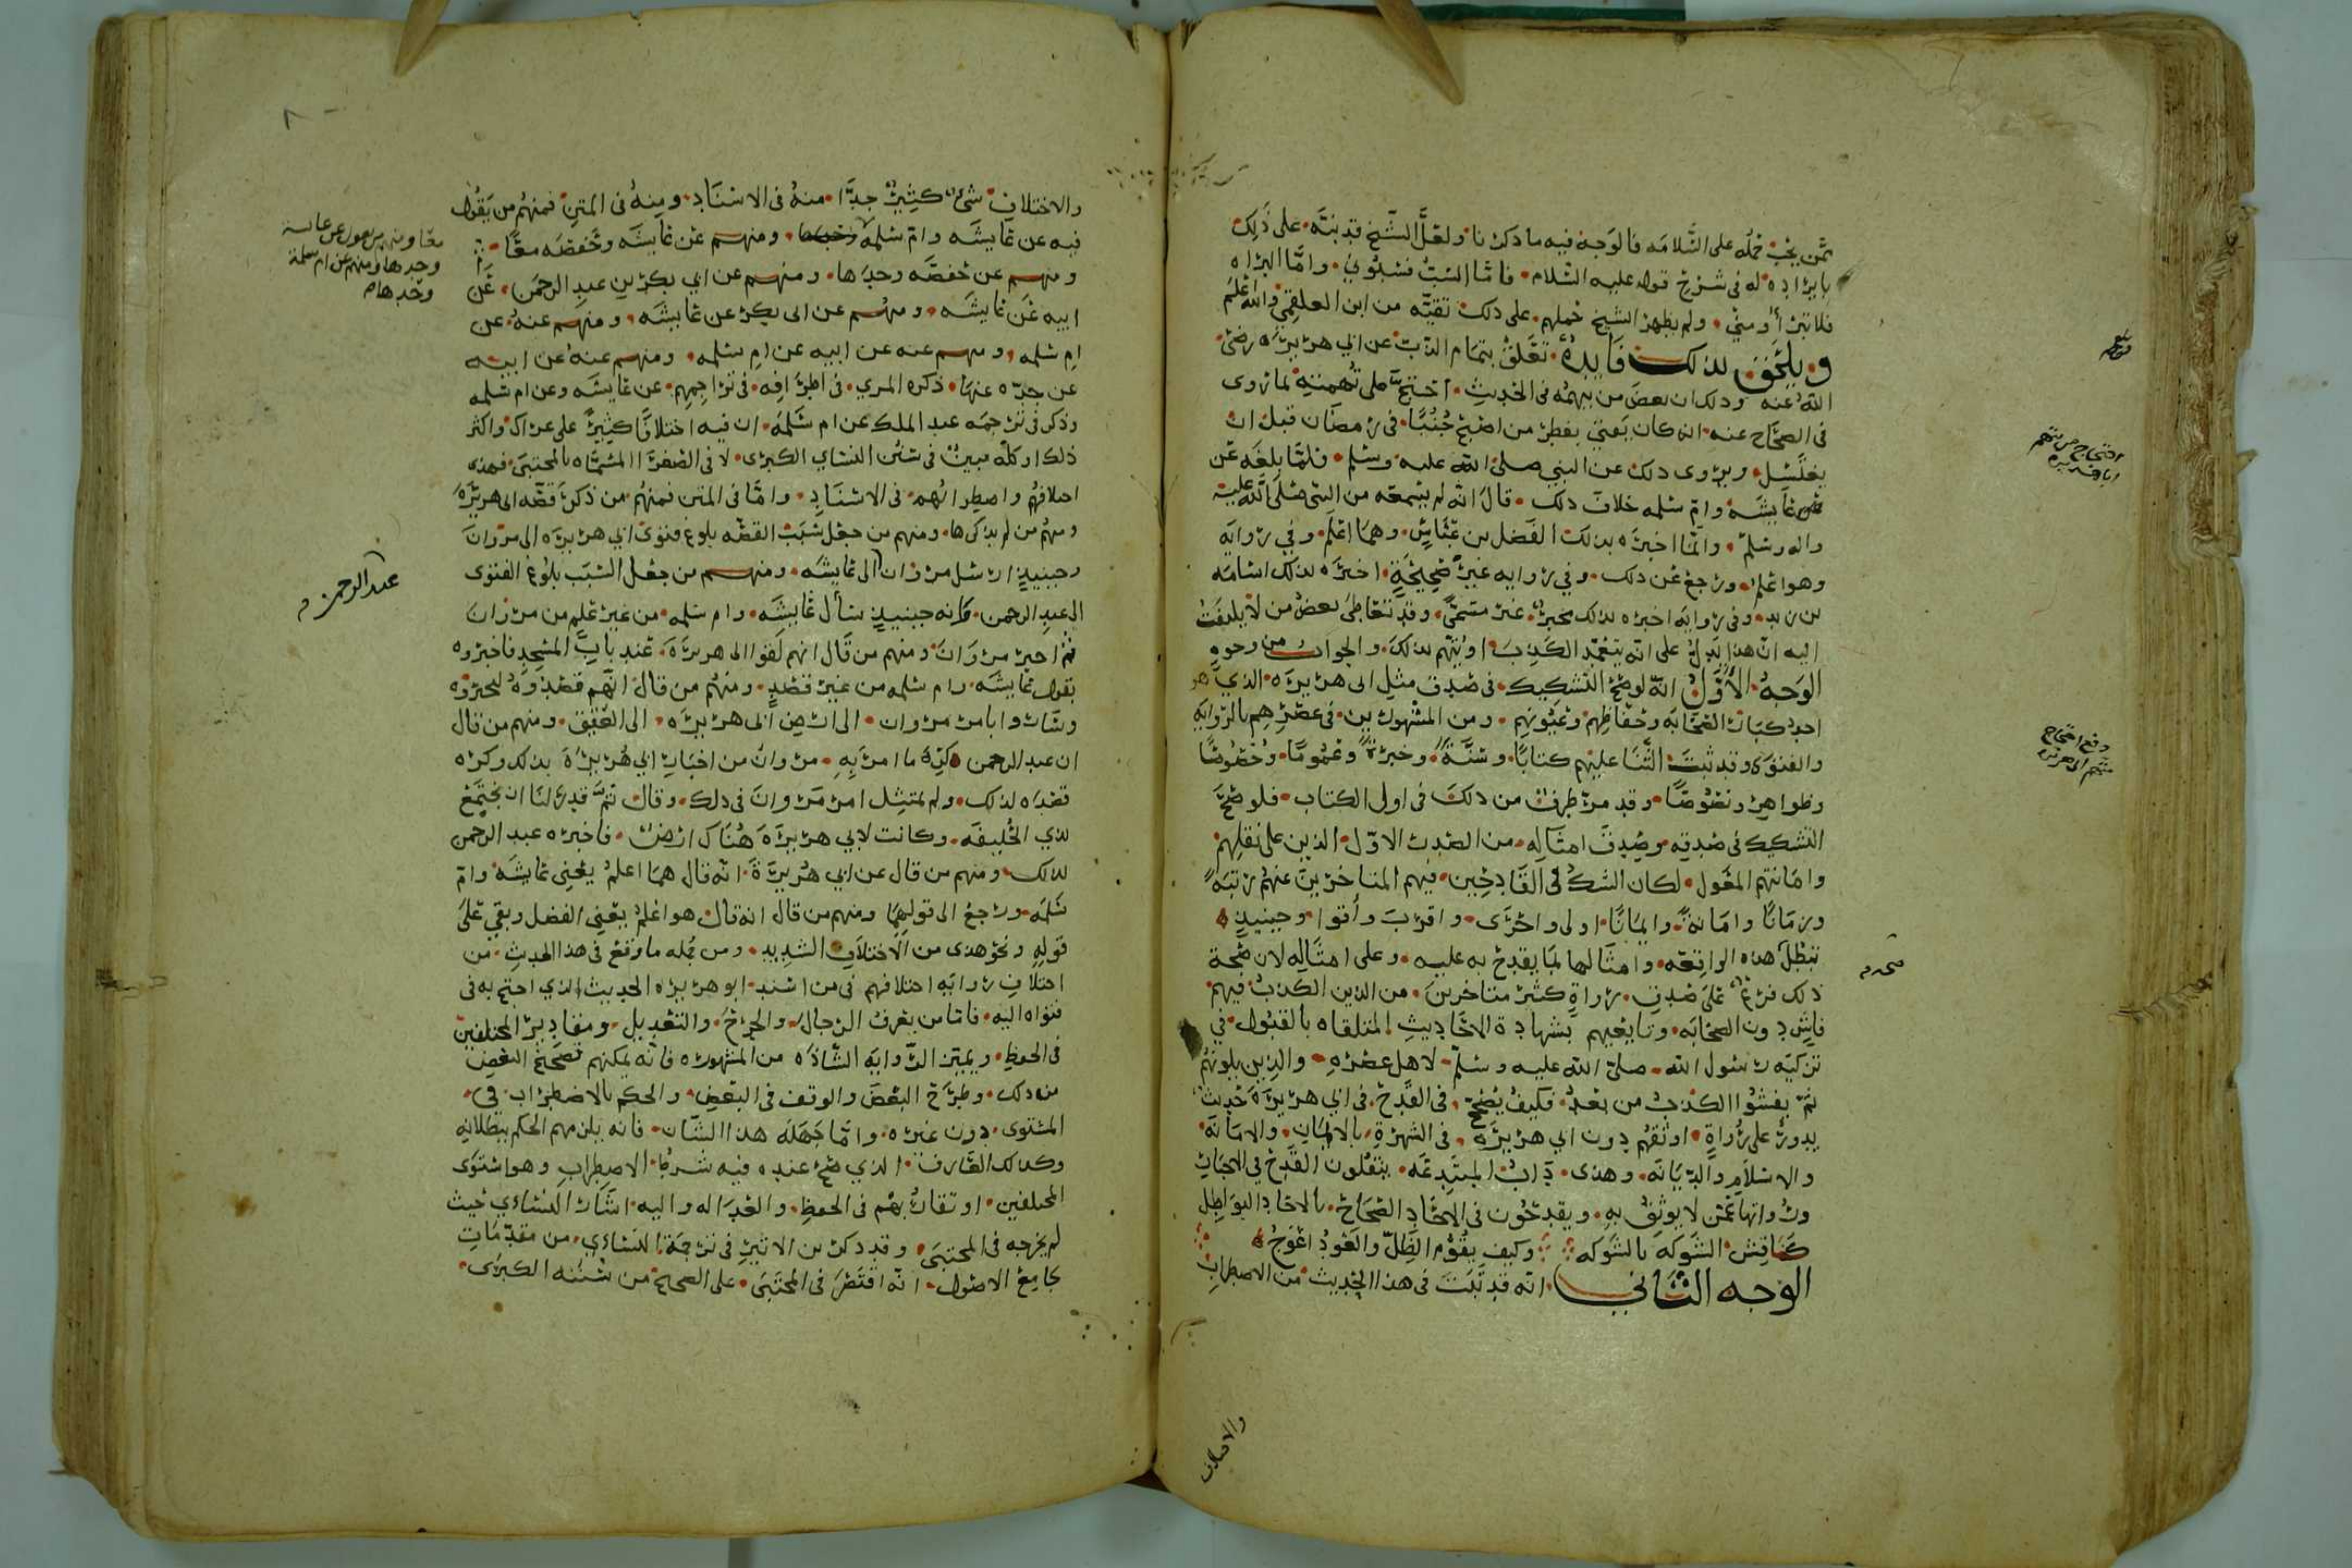 ممن يجب حمله على السلامه فالوجه فيه ما ذكرنا ولعل الشيخ قد نبه على ذلك
بايراده له في شرح قوله عليه السلام فاما السب فسبوني واما البراه
فلا تبرأوا مني ولم يظهر الشيخ حملهم على ذلك تقيه من ابن العلقمي والله اعلم
ويلحق بذلك فايده تتعلق بتمام الذب عن ابي هريره رضي
الله عنه وذلك ان بعض من يتهمه في الحديث احتج على تهمته لما روى
في الصحاح عنه انه كان يفتي بفطر من اصبح جنبا في رمضان قبل ان
يغتسل ويروى ذلك عن النبي صلى الله عليه وسلم فلما بلغه عن
عايشه وام سلمه خلاف ذلك قال انه لم يسمعه من النبي صلى الله عليه
واله وسلم وانما اخبره بذلك الفضل بن عباس وهما اعلم وفي روايه
وهو اعلم ورجع عن ذلك وفي روايه غير صحيحة اخبره بذلك اسامه
بن زيد وفي روايه اخبره بذلك مخبر غير مسمى وقد تعاطى بعض من لا يلتفت
اليه ان هذا يدل على انه يتعمد الكذب او يتهم بذلك والجواب من وجوه
الوجه الأول انه لو صح التشكيك في صدق مثل ابي هريره الذي هو
احد كبار الصحابه وحفاظهم وعيونهم ومن المشهورين في عصرهم بالروايه
والفتوى وقد ثبت الثنا عليهم كتابا وسنة وخبرة وعموما وخصوصا
وظواهر ونصوصا وقد مر طرف من ذلك في اول الكتاب فلو صح
التشكيك في صدقه وصدق امثاله من الصدر الاول الذين على نقلهم
وامانتهم المعول لكان الشك في القادحين فيهم المتاخرين عنهم رتبة
وزمانا وامانة وايمانا اولى واحرى واقرب وأقوا وحينيذ
تبطل هذه الواقعه وامثالها لما يقدح به عليه وعلى امثاله لان صحة
ذلك فرع على صدق رواة كثر متاخرين من الذين الكذب فيهم
فاش دون الصحابه وتابعيهم بشهادة الاحاديث المتلقاه بالقبول في
تزكيه رسول الله صلى الله عليه وسلم لاهل عصره والذين يلونهم
ثم يفشوا الكذب من بعد فكيف يصح في القدح في ابي هريرة حديث
يدور على رواة اوثقهم دون ابي هريره في الشهرة بالايمان والامانه
والاسلام والديانه وهذى دآب المبتدعه يتقلون القدح في الاخبار
ورواتها عمن لا يوثق به ويقدحون في الاحاد الصحاح بالاحاد البواطل
كناقش الشوكه بالشوكه وكيف يقوم الظل والعود اعوج
الوجه الثاني انه قد ثبت في هذا الحديث من الاضطراب
احتجاج من يتهم
ابا هريره
دفع احتجاج
متهم ابي هريره
والاختلاف
والاختلاف شيء كثير جدا منه في الاسناد ومنه في المتن فمنهم من يقول
فيه عن عايشه وام سلمه ومنهم عن عايشه وحفصه معا
ومنهم عن حفصه وحدها ومنهم عن ابي بكر بن عبد الرحمن عن
ابيه عن عايشه ومنهم عن ابي بكر عن عايشه ومنهم عنه عن
ام سلمه ومنهم عنه عن ابيه عن ام سلمه ومنهم عنه عن ابيه
عن جده عنها ذكره المزي في اطرافه في تراجمهم عن عايشه وعن ام سلمه
وذكر في ترجمه عبد الملك عن ام سلمه ان فيه اختلافا كثير على عراك واكثر
ذلك او كله مبين في سنن النسائي الكبرى لا في الصغرا المسماه بالمجتبى فهذى
اختلافهم واضطرابهم في الاسناد واما في المتن فمنهم من ذكر قصه ابي هريرة
ومنهم من لم يذكرها ومنهم من جعل سبب القصه بلوغ فتوى ابي هريره الى مروان
وحينيذ ارسل مروان الى عايشه ومنهم من جعل السبب بلوغ الفتوى
الى عبد الرحمن وانه حينيذ سأل عايشه وام سلمه من غير علم من مروان
ثم اخبر مروان ومنهم من قال انهم لقوا ابا هريرة عند باب المسجد فاخبروه
بقول عايشه وام سلمه من غير قصد ومنهم من قال انهم قصدوه ليخبروه
وساروا بامر مروان الى ارض ابي هريره الى العقيق ومنهم من قال
ان عبد الرحمن كره ما امر به مروان من اخبار ابي هريرة بذلك وكره
قصده لذلك ولم يمتثل امر مروان في ذلك وقال ثم قدر لنا ان نجتمع
بذي الحليفه وكانت لابي هريرة هناك ارض فاخبره عبد الرحمن
بذلك ومنهم من قال عن ابي هريرة انه قال هما اعلم يعني عايشه وام
سلمه ورجع الى قولهما ومنهم من قال انه قال هو اعلم يعني الفضل وبقي على
قوله ونحو هذى من الاختلاف الشديد ومن جمله ما وقع في هذا الحديث من
اختلاف رواته اختلافهم في من اسند ابو هريره الحديث الذي احتج به في
فتواه اليه فاما من يعرف الرجال والجرح والتعديل ومقادير المختلفين
في الحفظ ويميز الروايه الشاذه من المشهوره فانه يمكنهم تصحيح البعض
من ذلك وطرح البعض والوقف في البعض والحكم بالاضطراب في
المستوى دون غيره واما جهله هذا الشان فانه يلزمهم الحكم ببطلانه
وكذلك العارف الذي صح عنده فيه شرط الاضطراب وهو استوى
المختلفين او تقاربهم في الحفظ والعداله واليه اشار النسائي حيث
لم يخرجه في المجتبى وقد ذكر بن الاثير في ترجمة النسائي من مقدمات
جامع الاصول انه اقتصر في المجتبى على الصحيح من سننه الكبرى
معا ومنهم من يقول عن عائشة
وحدها ومنهم عن ام سلمة
وحدها
عبد الرحمن